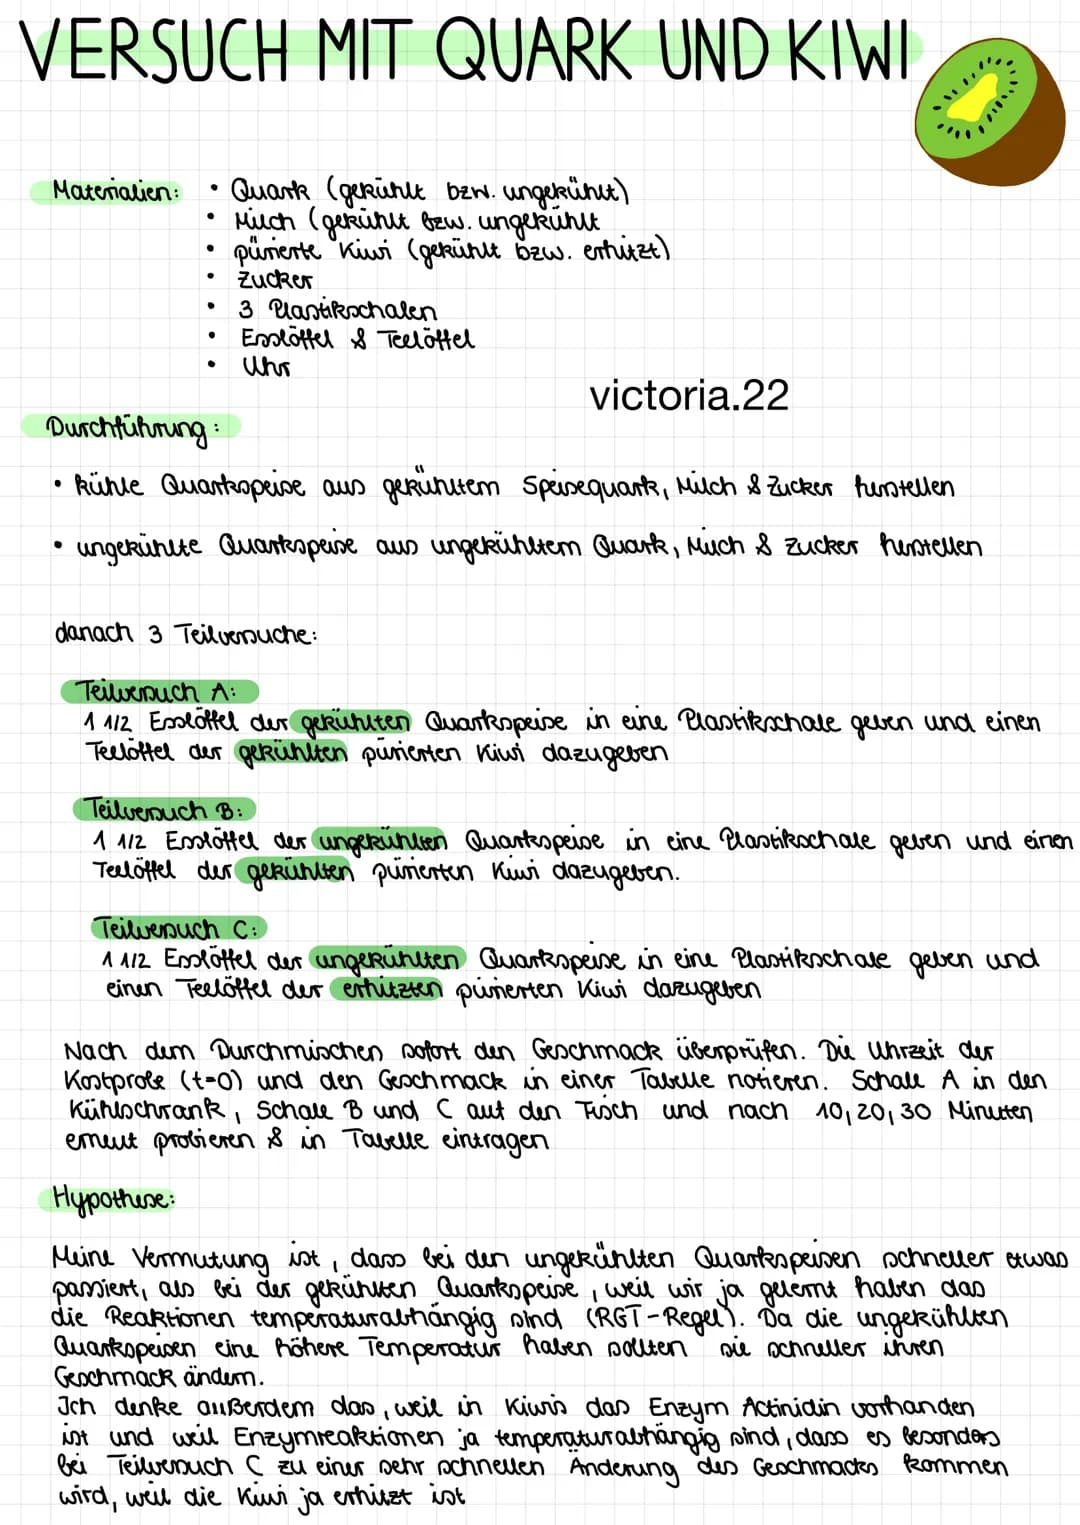 VERSUCH MIT QUARK UND KIWI
Materialien: • Quark (gekühlt bzw. ungekühlt)
• Milch (gekühlt bzw. ungekühlt
• pürierte Kiwi (gekühlt bzw. erhitzt)
• Zucker
• 3 Plastikschalen
• Esslöffel & Teelöffel
• Uhr
victoria.22
Durchführung:
• kühle Quarkspeise aus gekühltem Speisequark, Milch & Zucker herstellen
• ungekühlte Quarkspeise aus ungekühltem Quark, Milch & Zucker herstellen
danach 3 Teilversuche:
Teilversuch A:
1 1/2 Esslöffel der gekühlten Quarkspeise in eine Plastikschale geben und einen
Teelöffel der gekühlten pürierten Kiwi dazugeben
Teilversuch B:
1 1/2 Esslöffel der ungekühlten Quarkspeise in eine Plastikschale geben und einen
Teelöffel der gekühlten pürierten Kiwi dazugeben.
Teilversuch C:
1 1/2 Esslöffel der ungekühlten Quarkspeise in eine Plastikschale geben und
einen Teelöffel der erhitzten pürierten Kiwi dazugeben
Nach dem Durchmischen sofort den Geschmack überprüfen. Die Uhrzeit der
Kostprobe (t=0) und den Geschmack in einer Tabelle notieren. Schale A in den
Kühlschrank, Schale B und C auf den Tisch und nach 10, 20, 30 Minuten
erneut probieren & in Tabelle eintragen
Hypothese:
Meine Vermutung ist, dass bei den ungekühlten Quarkspeisen schneller etwas
passiert, als bei der gekühlten Quarkspeise, weil wir ja gelernt haben das
die Reaktionen temperaturabhängig sind (RGT-Regel). Da die ungekühlten
Quarkspeisen eine höhere Temperatur haben sollten sie schneller ihren
Geschmack ändern.
Ich denke außerdem das, weil in Kiwis das Enzym Actinidin vorhanden
ist und weil Enzymreaktionen ja temperaturabhängig sind, dass es besonders
bei Teilversuch C zu einer sehr schnellen Änderung des Geschmacks kommen
wird, weil die Kiwi ja erhitzt ist